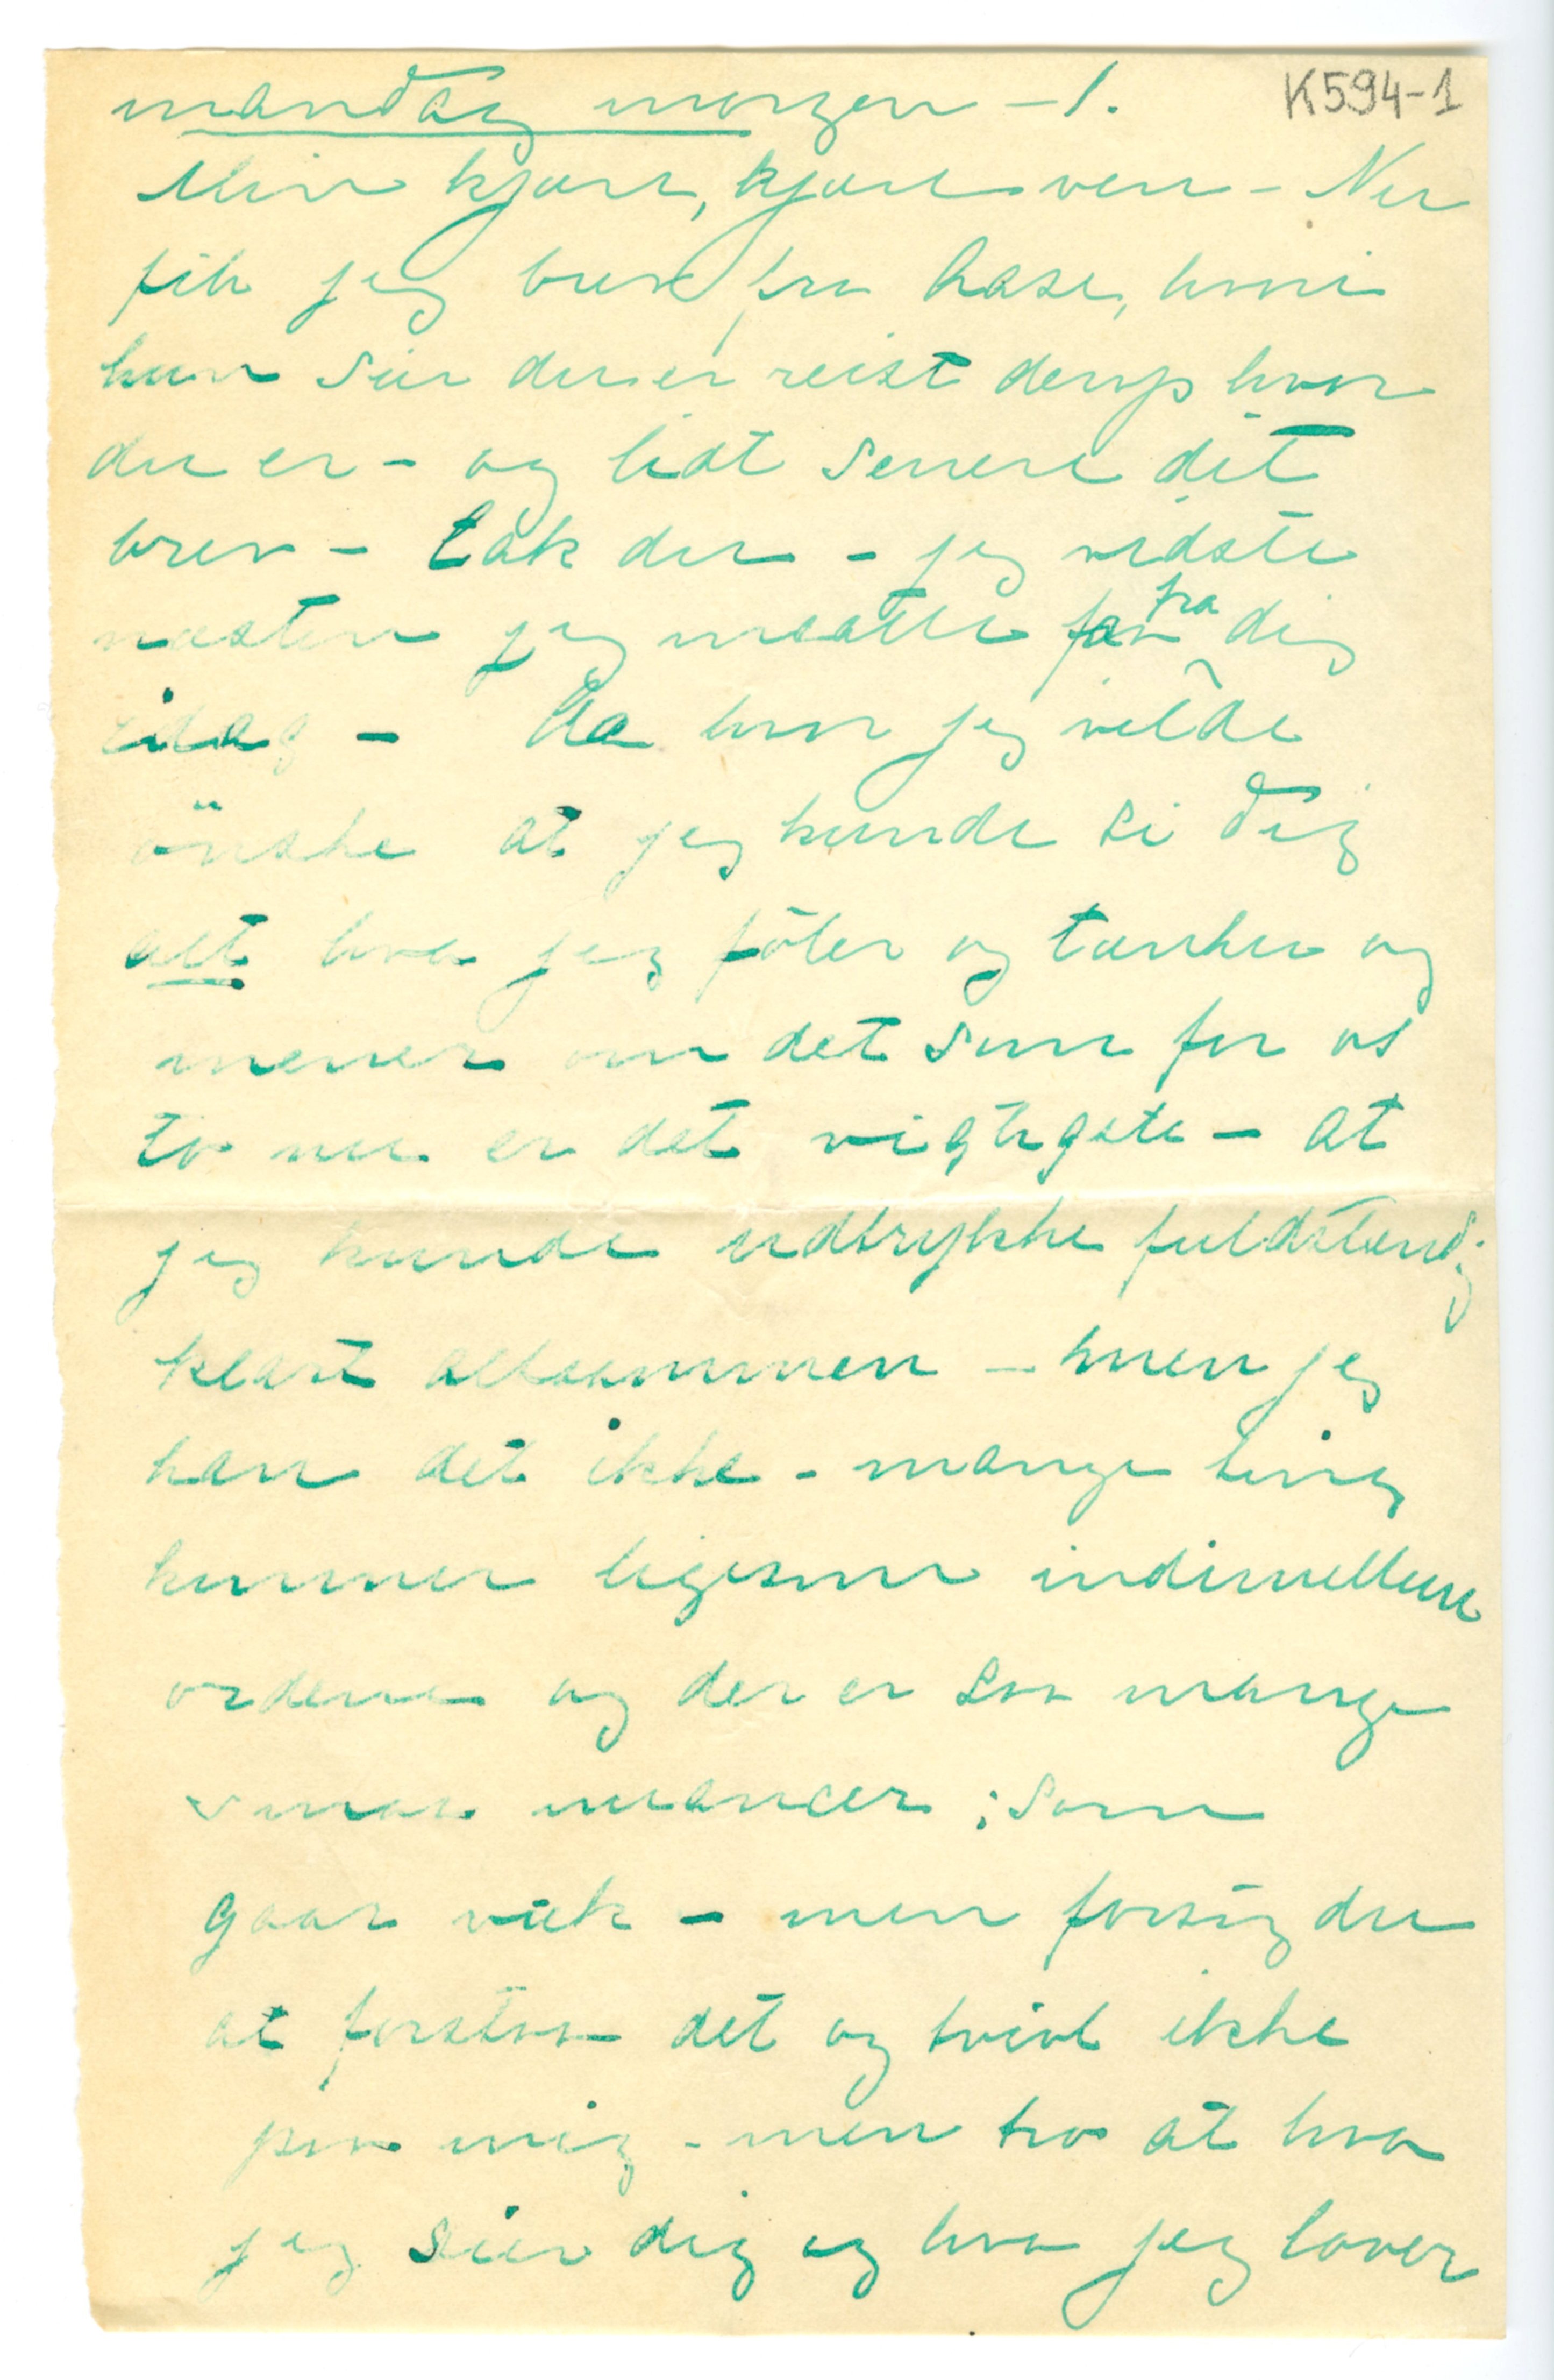 mandag morgen – 1.
K594-1
Min kjære, kjære ven – Nu
fik jeg brev fra Aase, hvori
hun sier du er reist derop hvor
du er – og lidt senere dit
brev – tak du – jeg vidste
næsten jeg maatte faa fra dig
idag – Aa hvor jeg vilde
önske at jeg kunde si dig
alt hva jeg föler og tænker og
mener om det som for os
to nu er det vigtigste – at
jeg kunde udtrykke fuldstændig
klart altsammen – men jeg
kan det ikke – mange ting
kommer ligesom indimellem
ordene og der er saa mange
smaa nuancer ; som
gaar væk – men forsög du
at forstaa det og tvivl ikke
paa mig – men tro at hva
jeg sier dig og hva jeg lover